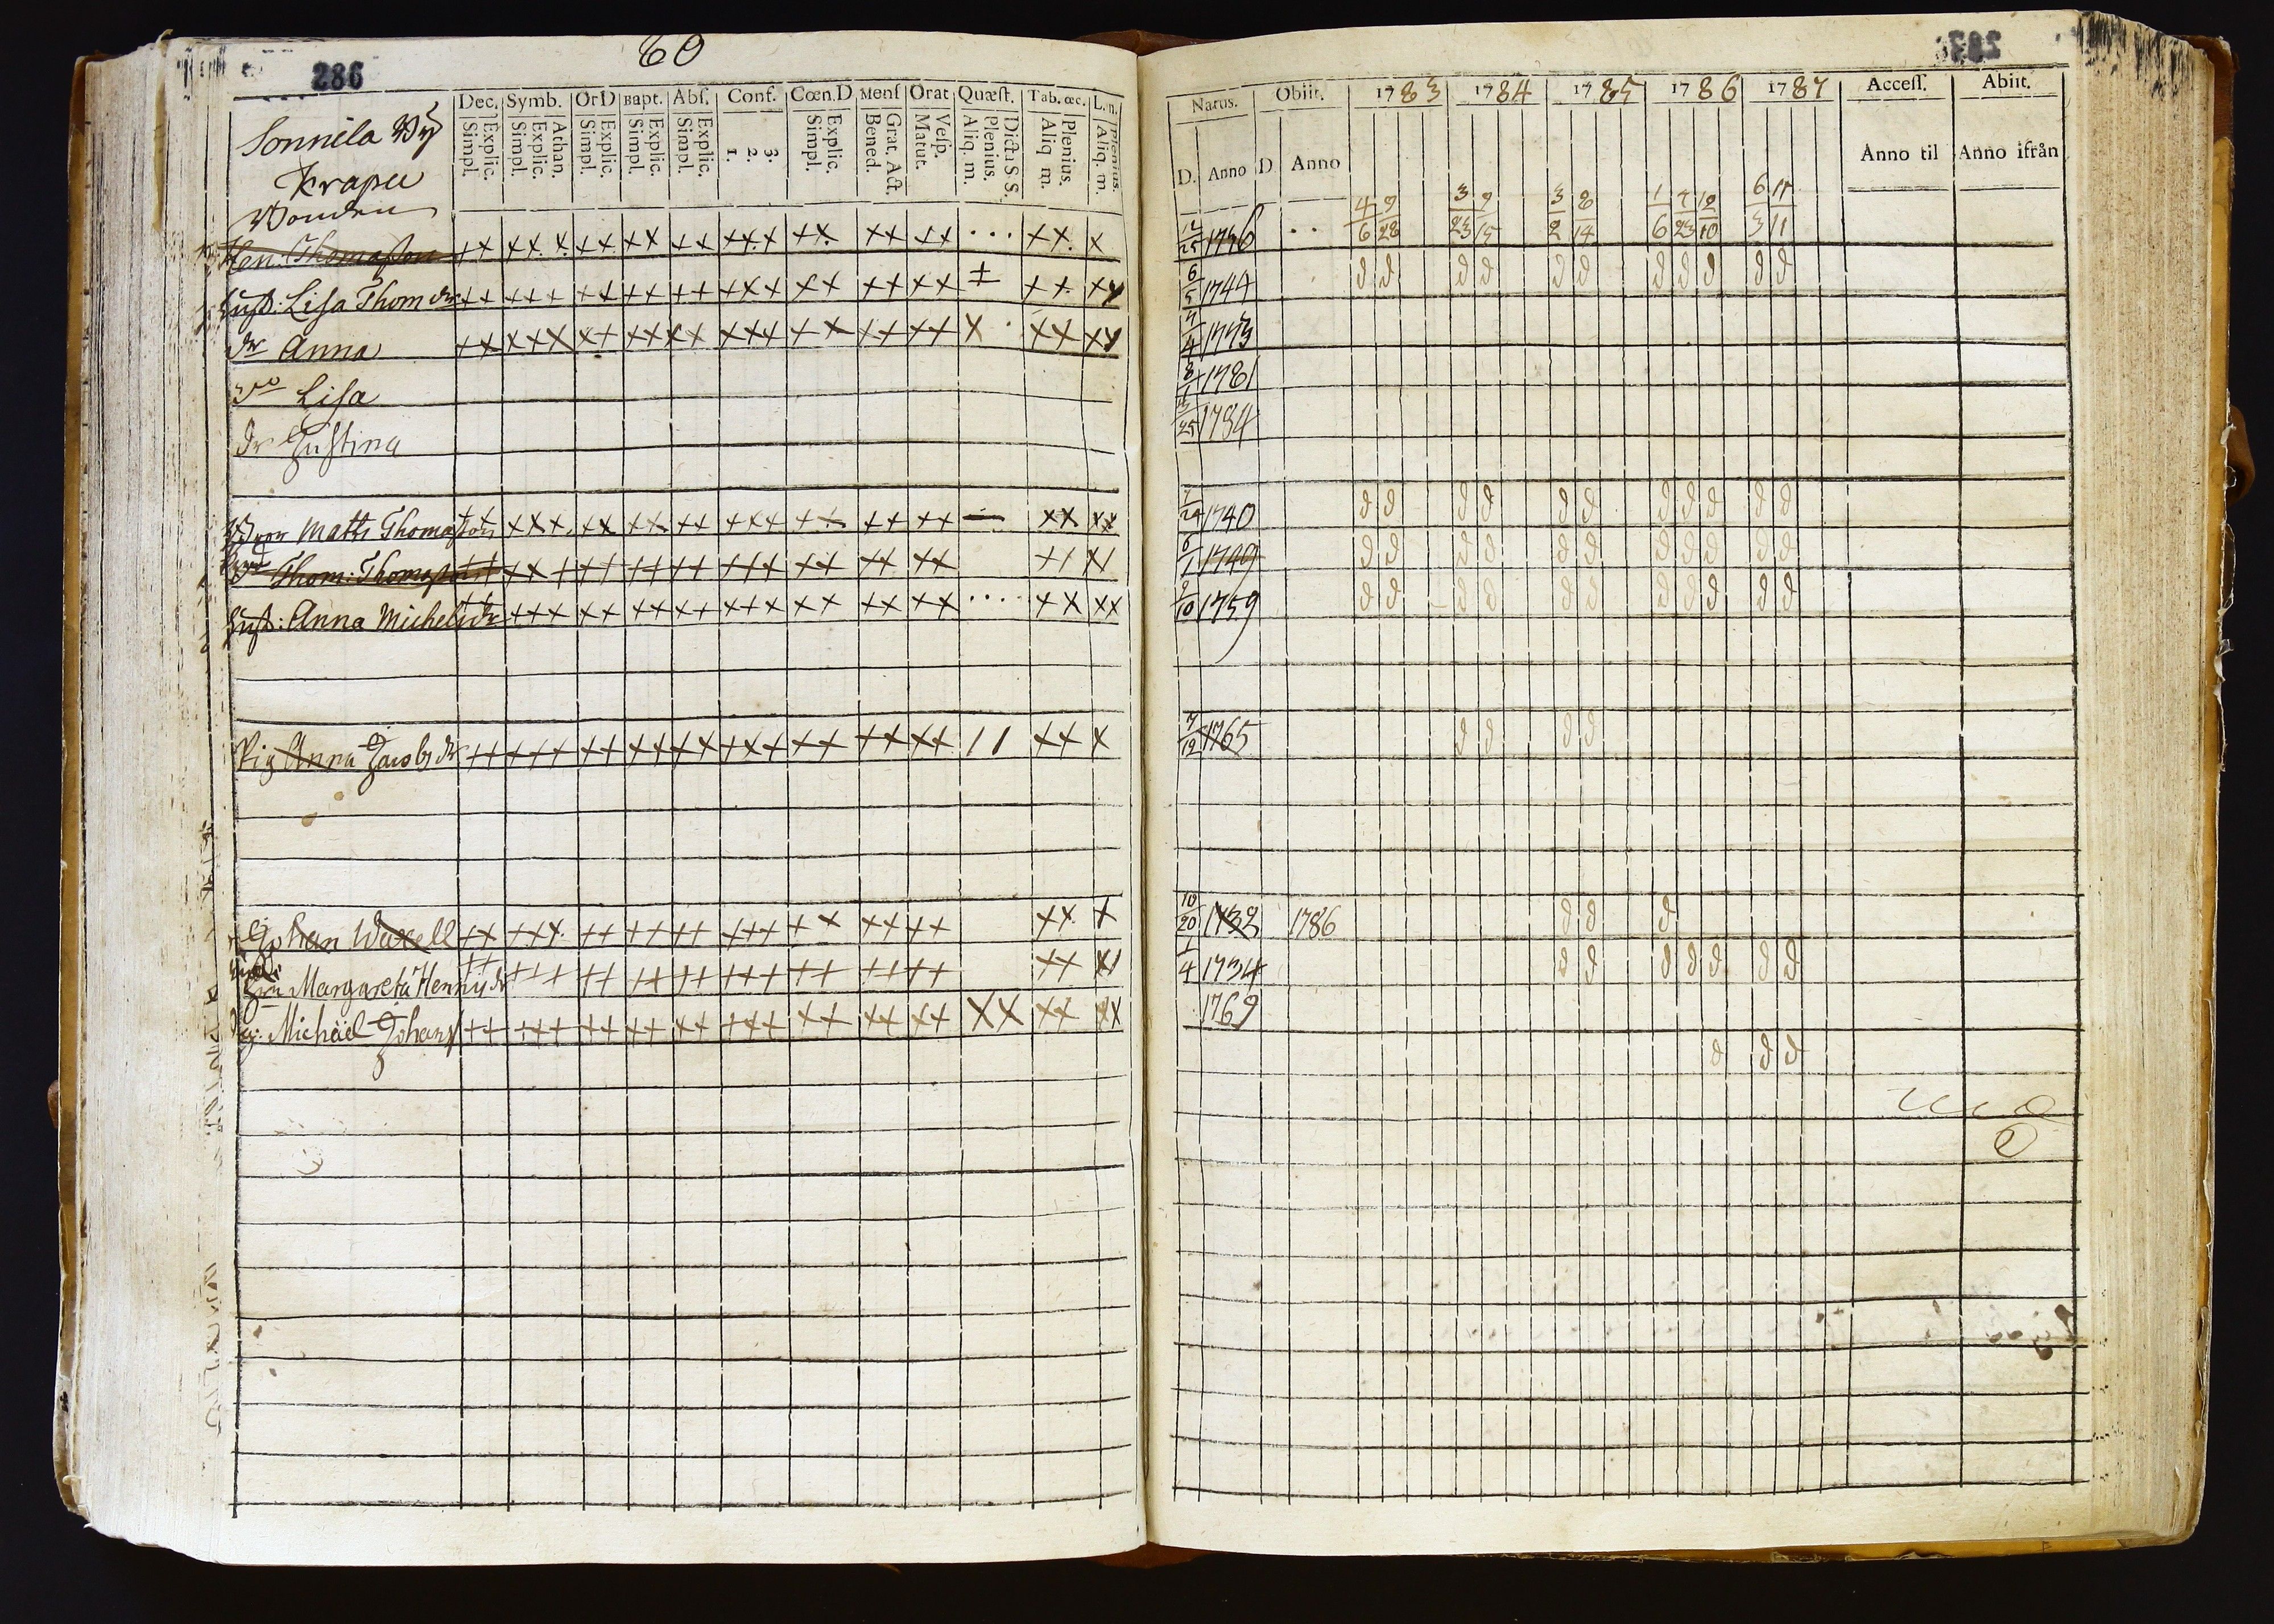 286
60
Dec. Symb. OrD Bapt. Abſ. Conf. Cœn.D Menſ Orat Quæſt. Tab. œc. L.n.
Explic. Simpl. Athan. Explic. Simpl. Explic. Simpl. Explic. Simpl. Explic. Simpl. 3. 2. 1. Explic. Simpl. Grat. Act. Bened. Veſp. Matut. Dicta S S. Plenius. Aliq. m. Plenius. Aliq m. Plenius. Aliq. m.
Sonnila By
Krapu
Hen: Thomaſson
Huſt: Liſa Thom dr
dr Anna
dr Liſa
dr Juſtina
Matts Thomaſson
Thom: Thomaſson
Huſt: Anna Michelsdr
Pig Anna Jacobsdr
Johan Waxell
Margareta Henr dr
Michäel Johans
287
Natus. Obiit. 1783 1784 1785 1786 1787 Acceſſ. Abiit.
D. Anno D Anno Anno til Anno ifrån
4 9 3 9 3 8 1 7 12 6 11
6 28 23 15 2 14 6 23 10 3 11
12/25 1736
6/5 1744 d d d d d d d d d d d
7/4 1773
8/1 1781
1784
1740 d d d d d d d d d d d
6/1 1749 d d d d d d d d d d d
9/10 1759 d d d d d d d d d d d
7/12 1765 d d d d
10/20 1732 1786 d d d
1/4 1734 d d d d d d d
1769
d d d